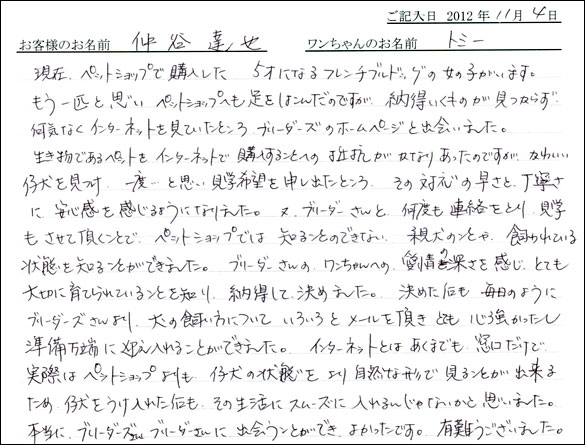 ご記入日 2012年 11月 4日
お客様のお名前 仲谷 達也 ワンちゃんのお名前 トミー
現在、ペットショップで購入した 5才になるフレンチブルドッグの女の子がいます。
もう一匹と思い ペットショップへも足をはこんだのですが、納得いくものが見つからず、
何気なくインターネットを見ていたところ ブリーダーズのホームページと出会いました。
生き物であるペットをインターネットで購入することへの抵抗がかなりあったのですが、かわいい
仔犬を見つけ 一度…と思い見学希望を申し出たところ、その対応の早さと、丁寧さ
に安心感を感じるようになりました。又、ブリーダーさんと、何度も連絡をとり、見学
もさせて頂くことで、ペットショップでは知ることのできない 親犬のことや、飼われている
状態を知ることができました。ブリーダーさんの、ワンちゃんへの、愛情の深さを感じ、とても
大切に育てられていることを知り、納得して決めました。決めた后も毎日のように
ブリーダーズさんより、犬の飼い方について いろいろとメールを頂きとても心強かったし
準備万端に迎え入れることができました。インターネットとはあくまでも、窓口だけで
実際はペットショップよりも、仔犬の状態をより自然な形で見ることが出来る
ため、仔犬をうけ入れた后も、その生活にスムーズに入れるんじゃないかと思いました。
本当に、ブリーダーズさん ブリーダーさんに出会うことができ、よかったです。有難うございました。